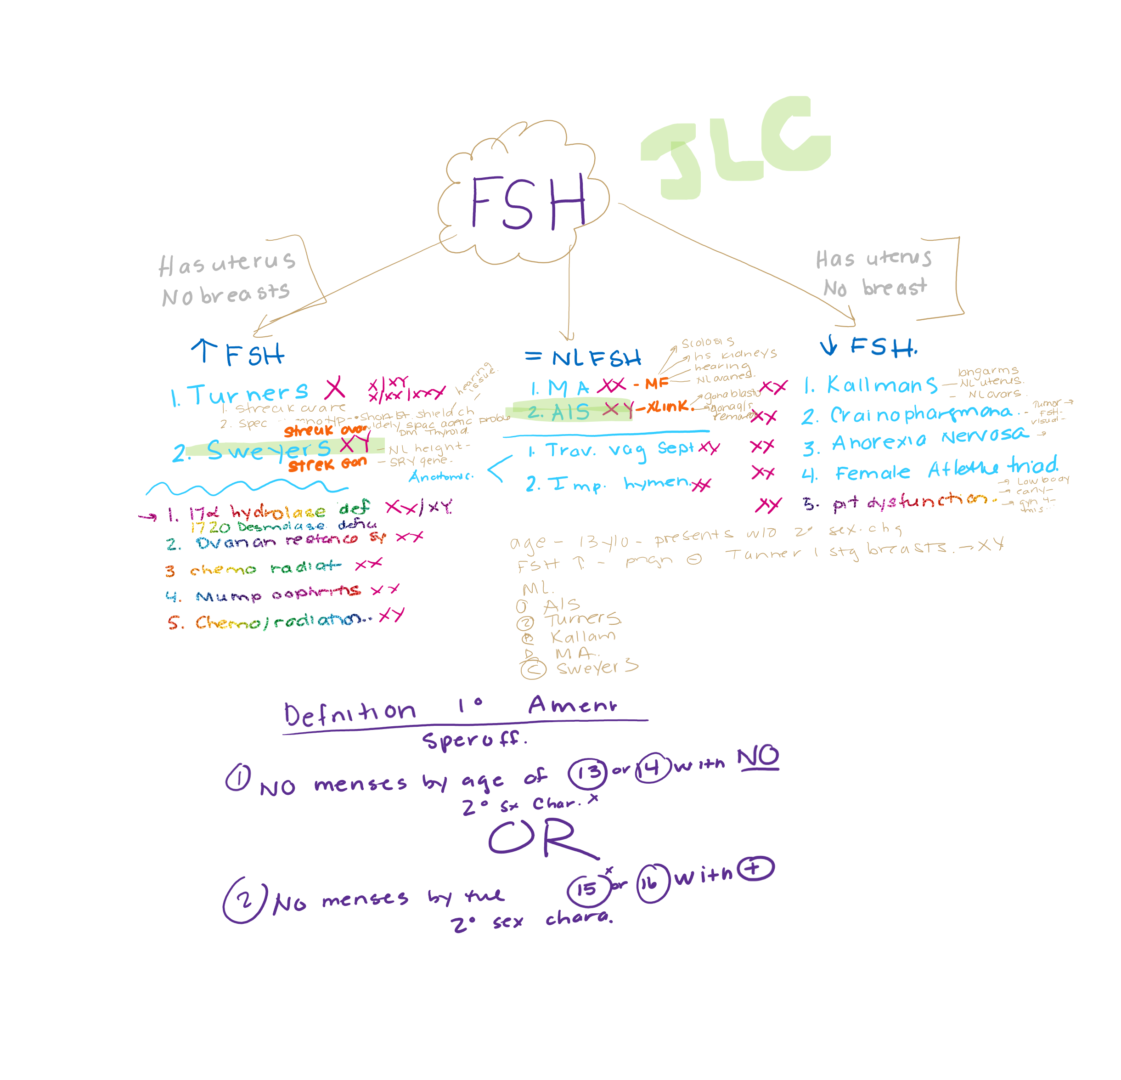 JLC
FSH
Has uterus
No breasts
Has uterus
No breast
↑ FSH
1. Turners X X/XY
X/XX/XXX
hearing
issue
1. Streak ovare
2. Spec
streak ovar
2. Sweyers XY
- NL height -
strek gon
- SRY gene.
→ 1. 17α hydrolase def XX/XY
1720 Desmolase defici
2. Ovarian restance sy XX
3 chemo radiat XX
4. Mump oophritis XX
5. Chemo/radiation.. XY
= NL FSH
Sciolosis
hs kidneys
hearing
NL ovaries.
1. MA XX - MF
2. AIS XY - xLink.
Anatomic.
1. Trav. vag sept XY
2. Imp. hymen XX
↓ FSH.
XX 1. Kallmans
longarms
- NL uterus
- NL ovars
XX 2. Crainophargmona..
Tumor →
FSH.
visual.
XX 3. Anorexia Nervosa →
XX 4. Female Atlethe triad
XY 5. pit dysfunction..
→ Low body
→ early -
→ gyn 4-
this
age - 13 y/o - presents w/o 2° sex. chg
FSH ↑ - prgn ⊖ Tanner 1 stg breasts. → XY
ML.
① AIS
② Turners
Kallam
D MA.
Ⓒ Sweyers
Defnition 1° Amenr
Speroff.
① NO menses by age of 13 or 14 with NO
2° sx Char. x
OR
② No menses by the 15 x or 16 with +
2° sex chara.